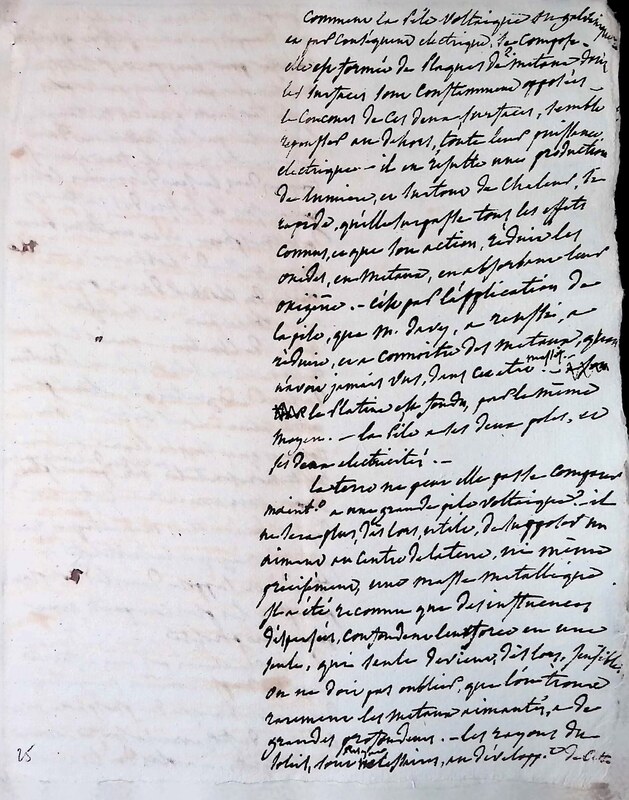 Comment la Pile Voltaique ou galvanique
et par conséquent electrique, se compose
elle est formée de Plaques de 2 metaux dont
les surfaces sont constamment opposées —
le concours de ces deux surfaces, semble
repousser au dehors, toute leur puissance
electrique — il en resulte une production
de lumiere, et surtout de chaleur, si
rapide, qu'elle surpasse tous les effets
connus, et que son action, réduit les
oxides, en metaux, en absorbant leur
oxigène. — C'est par l'application de
la pile, que M. davy, a reussi, a
réduire, et a connoitre des metaux, qu'on
n'avoit jamais vus, dans cet etat
la Platine est fondu, par le même
moyen. — la Pile a ses deux poles, et
ses deux electricités. —
la terre ne peut elle pas se comparer
maint.t a une grande pile voltaique? — il
ne sera plus, dès lors, utile, de supposer un
aimant au centre de la terre, ni même
précisément, une masse metallique
Il a été reconnu que des influences
dispersées, confondent leur force en une
seule, qui seule devient, dès lors, sensible.
on ne doit pas oublier, que l'on trouve
rarement les metaux aimantés, a de
grandes profondeurs. — les rayons du
soleil, sont necessaires, au développ.t de cette
25